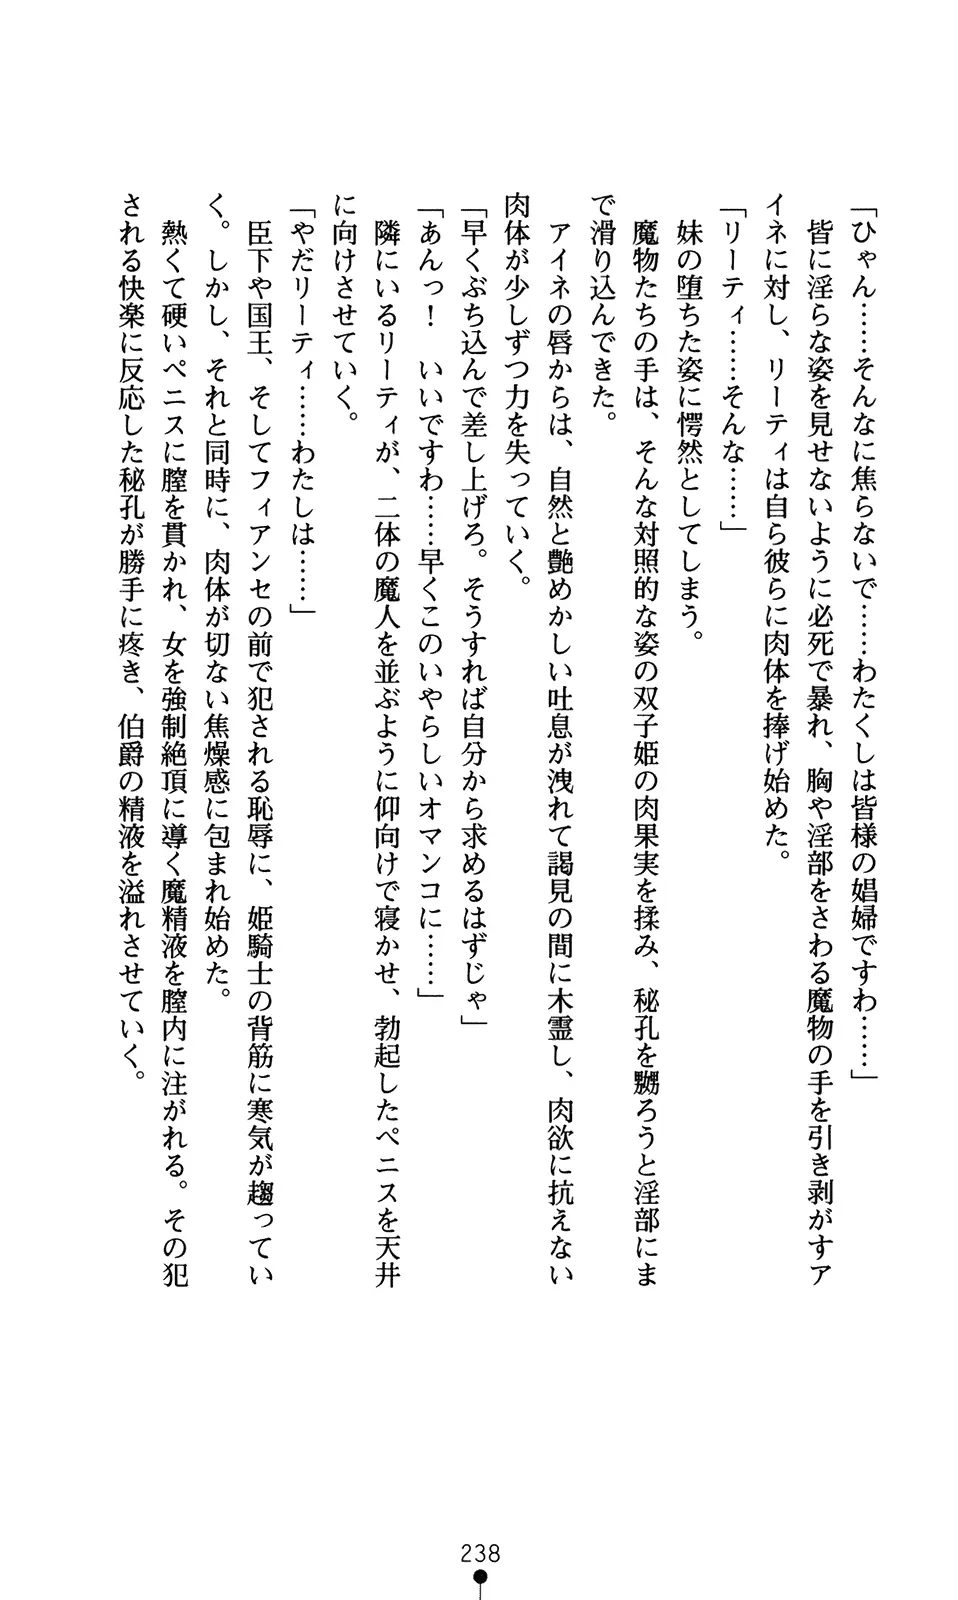 「ひゃん……そんなに焦らないで……わたくしは皆様の娼婦ですわ……」
皆に淫らな姿を見せないように必死で暴れ、胸や淫部をさわる魔物の手を引き剥がすア
イネに対し、リーティは自ら彼らに肉体を捧げ始めた。
「リーティ……そんな……」
妹の堕ちた姿に愕然としてしまう。
魔物たちの手は、そんな対照的な姿の双子姫の肉果実を揉み、秘孔を嬲ろうと淫部にま
で滑り込んできた。
アイネの唇からは、自然と艶めかしい吐息が洩れて謁見の間に木霊し、肉欲に抗えない
肉体が少しずつ力を失っていく。
「早くぶち込んで差し上げろ。そうすれば自分から求めるはずじゃ」
「あんっ！　いいですわ……早くこのいやらしいオマンコに……」
隣にいるリーティが、二体の魔人を並ぶように仰向けで寝かせ、勃起したペニスを天井
に向けさせていく。
「やだリーティ……わたしは……」
臣下や国王、そしてフィアンセの前で犯される恥辱に、姫騎士の背筋に寒気が趨ってい
く。しかし、それと同時に、肉体が切ない焦燥感に包まれ始めた。
熱くて硬いペニスに膣を貫かれ、女を強制絶頂に導く魔精液を膣内に注がれる。その犯
される快楽に反応した秘孔が勝手に疼き、伯爵の精液を溢れさせていく。
238